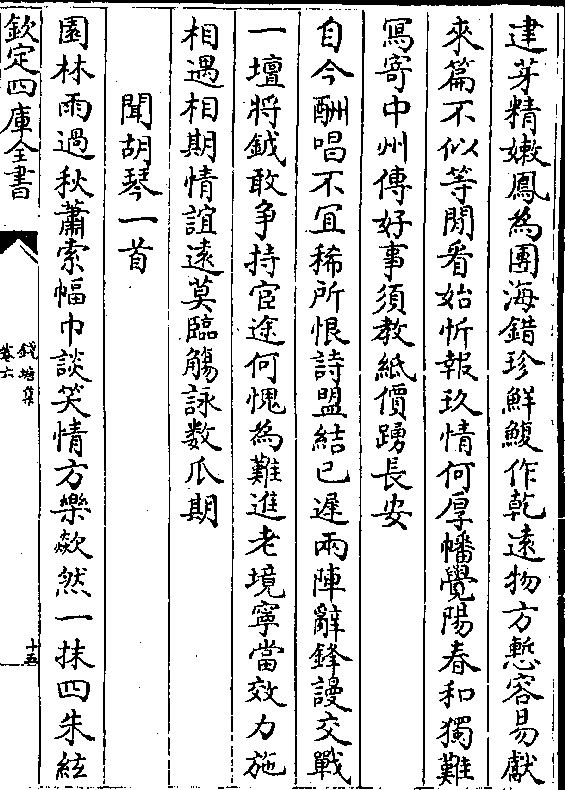 建芽精嫩鳳為團海錯珍鮮鰒作乾遠物方慙容易獻
來篇不似等閒看始忻報玖情何厚幡覺陽春和獨難
寫寄中州傳好事須教紙價踴長安
自今酬唱不宜稀所恨詩盟結已遲兩陣辭鋒謾交戰
一壇將鉞敢争持宦途何愧為難進老境寧當效力施
相遇相期情誼遠莫臨觴詠数瓜期
聞胡琴一首
園林雨過秋蕭索幅巾談笑情方樂歘然一抹四朱絃
欽定四庫全書
錢塘集
卷六
十五